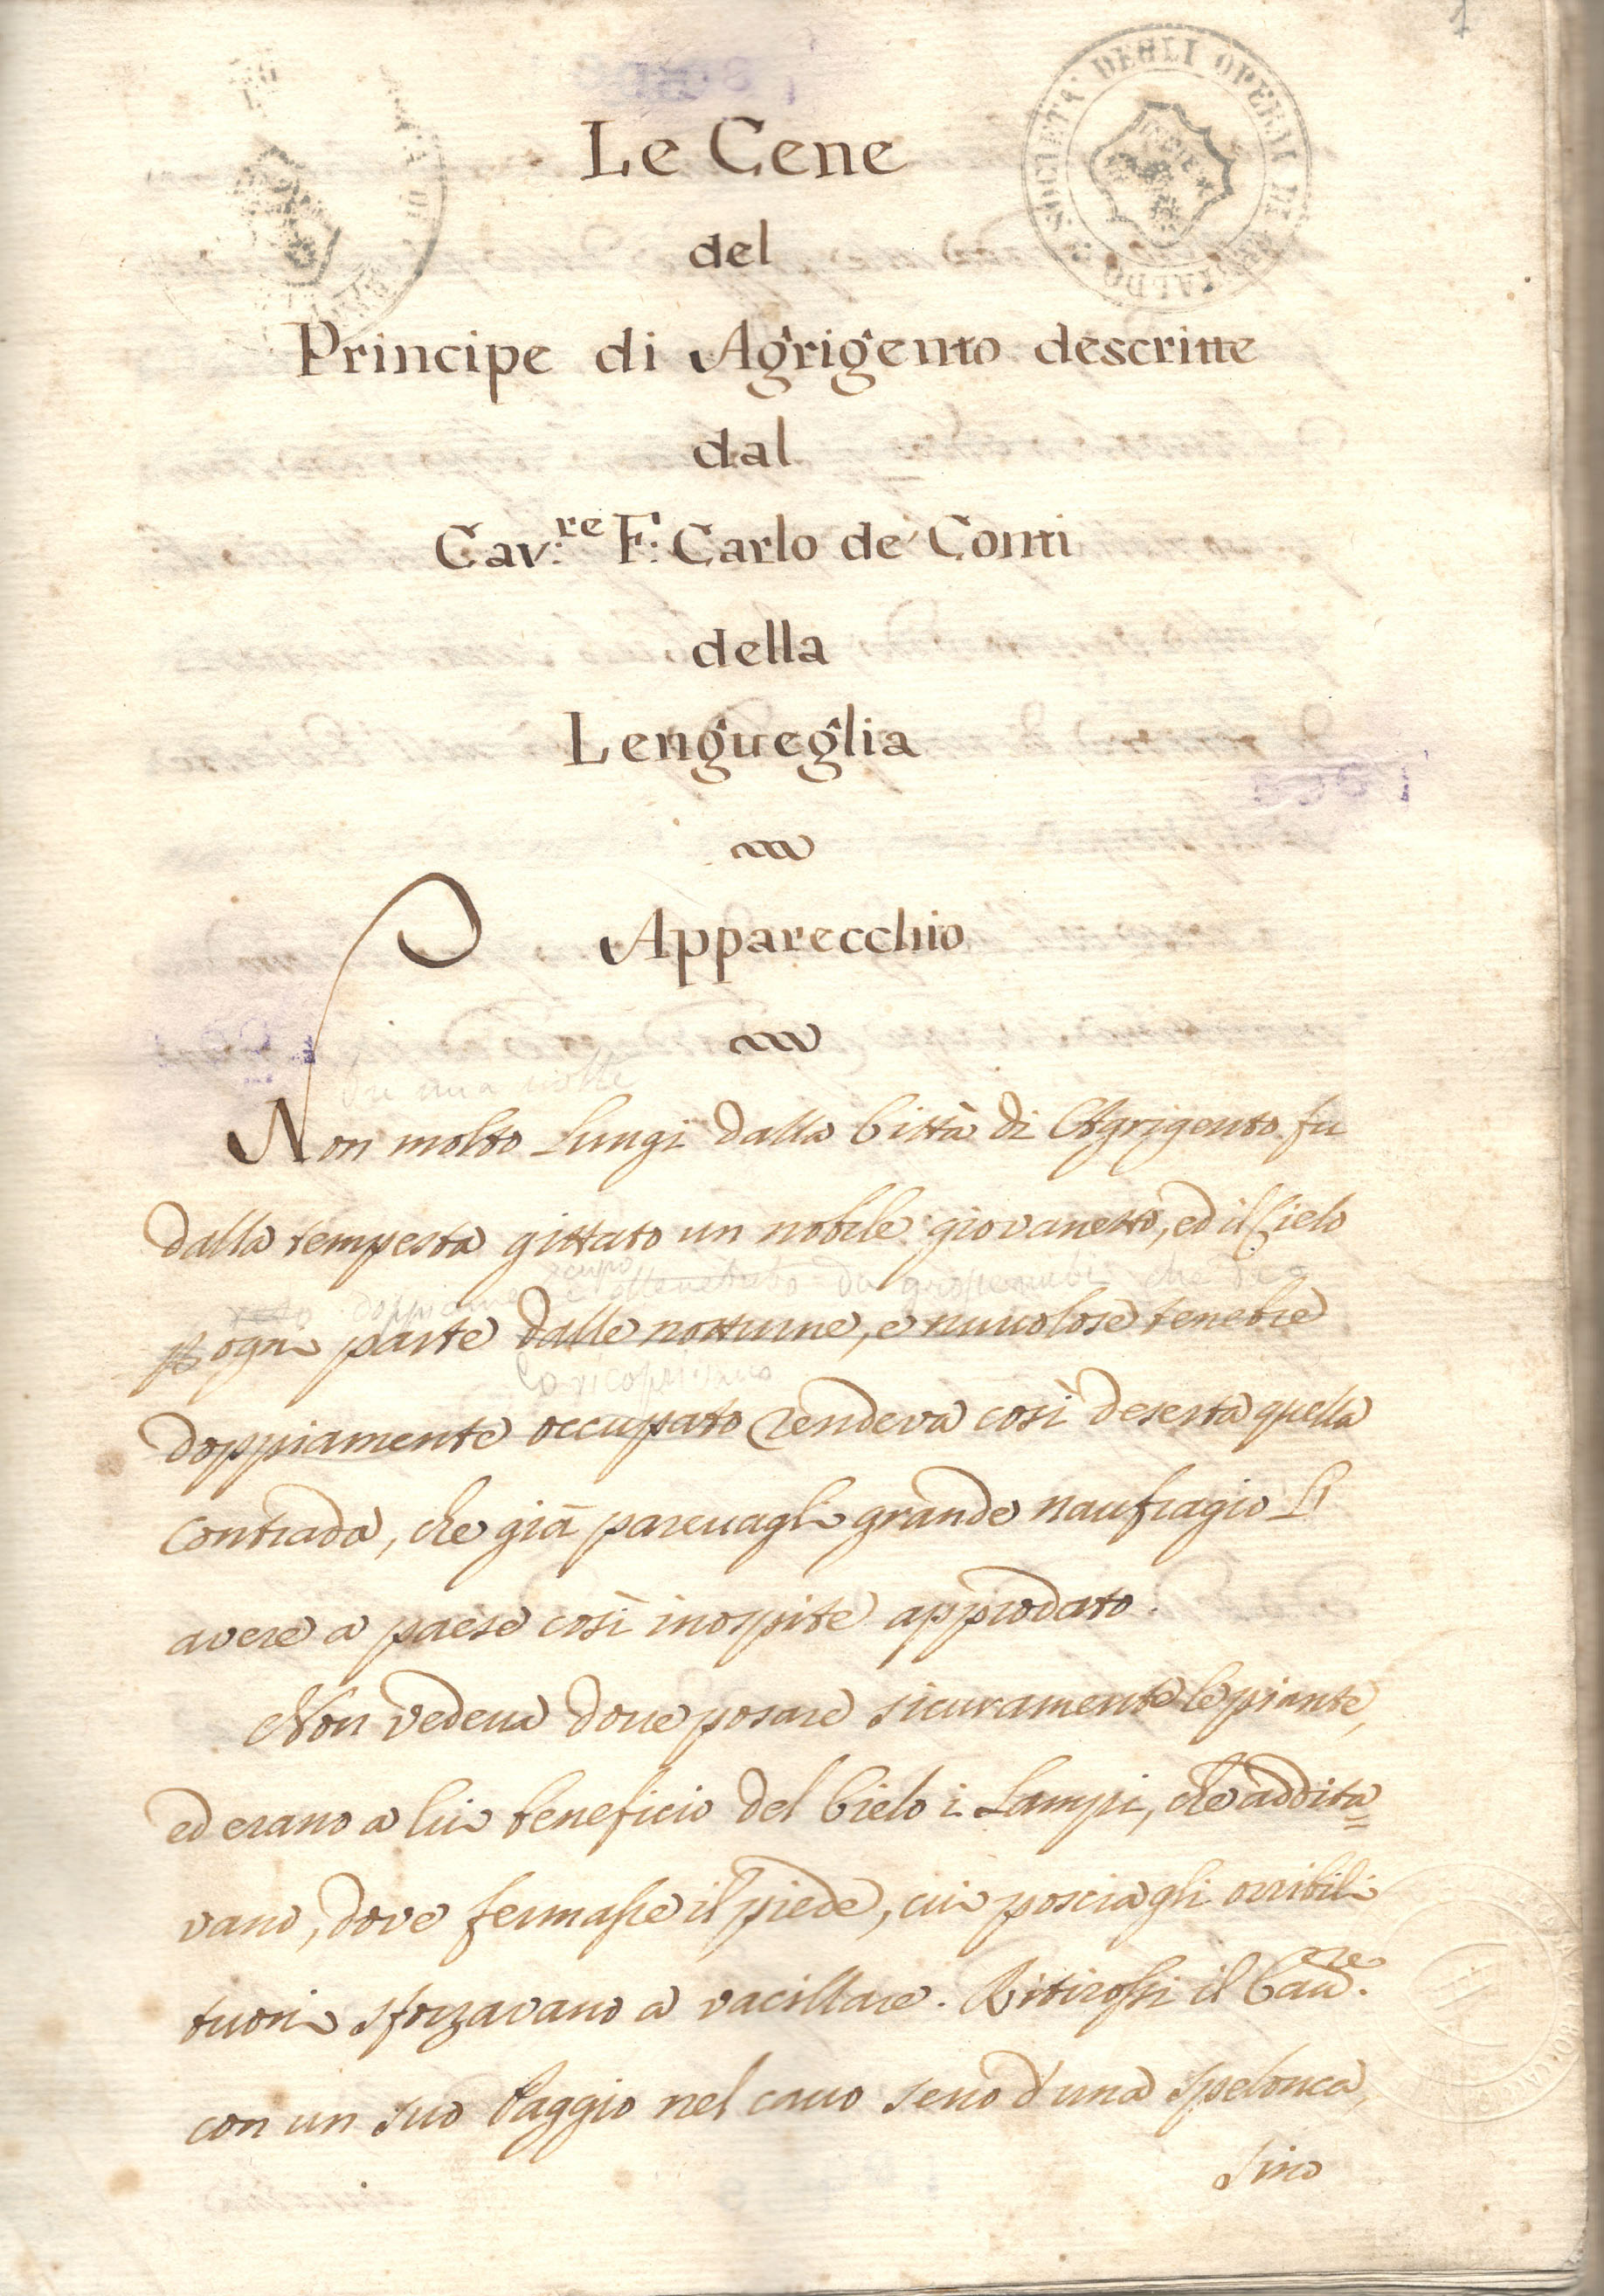 1
SOCIETA' DEGLI OPERAI DI CERTALDO
Le Cene
del
Principe di Agrigento descritte
dal
Cav:re F: Carlo de' Conti
della
Lengueglia
Apparecchio
In una notte
Non molto Lungi dalla Città di Agrigento fu
dalla tempesta gittato un nobile giovanetto, ed il Cielo
cupo
doppiamente ottenebrato da grosse nubi che da
ogni parte dalle notturne, e nuvolose tenebre
lo ricoprivano
doppiamente occupato rendeva così deserta quella
Contrada, che già parevagli grande naufragio L'
avere a paese così inospite approdato.
Non vedeva dove posare sicuramente le piante,
ed erano a lui beneficio del Cielo i Lampi, che addita=
vano, dove fermasse il piede, cui poscia gli orribili
tuoni sforzavano a vacillare. Ritirossi il Cav.re
con un suo Paggio nel cavo seno d'una spelonca,
sino